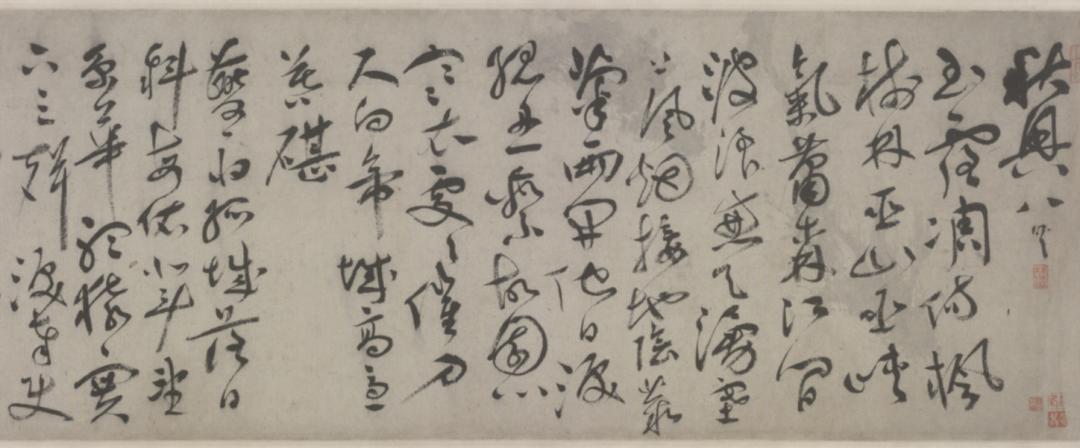 秋興八首
玉露凋傷楓
樹林巫山巫峽
氣蕭森江間
波浪兼天湧塞
上風烟接地陰叢
菊兩開他日淚
孤舟一繫故園心
寒衣處〻催刀
尺白帝城高急
暮砧
夔府孤城落日
斜每依北斗望
京華聽猿實
下三聲淚奉使